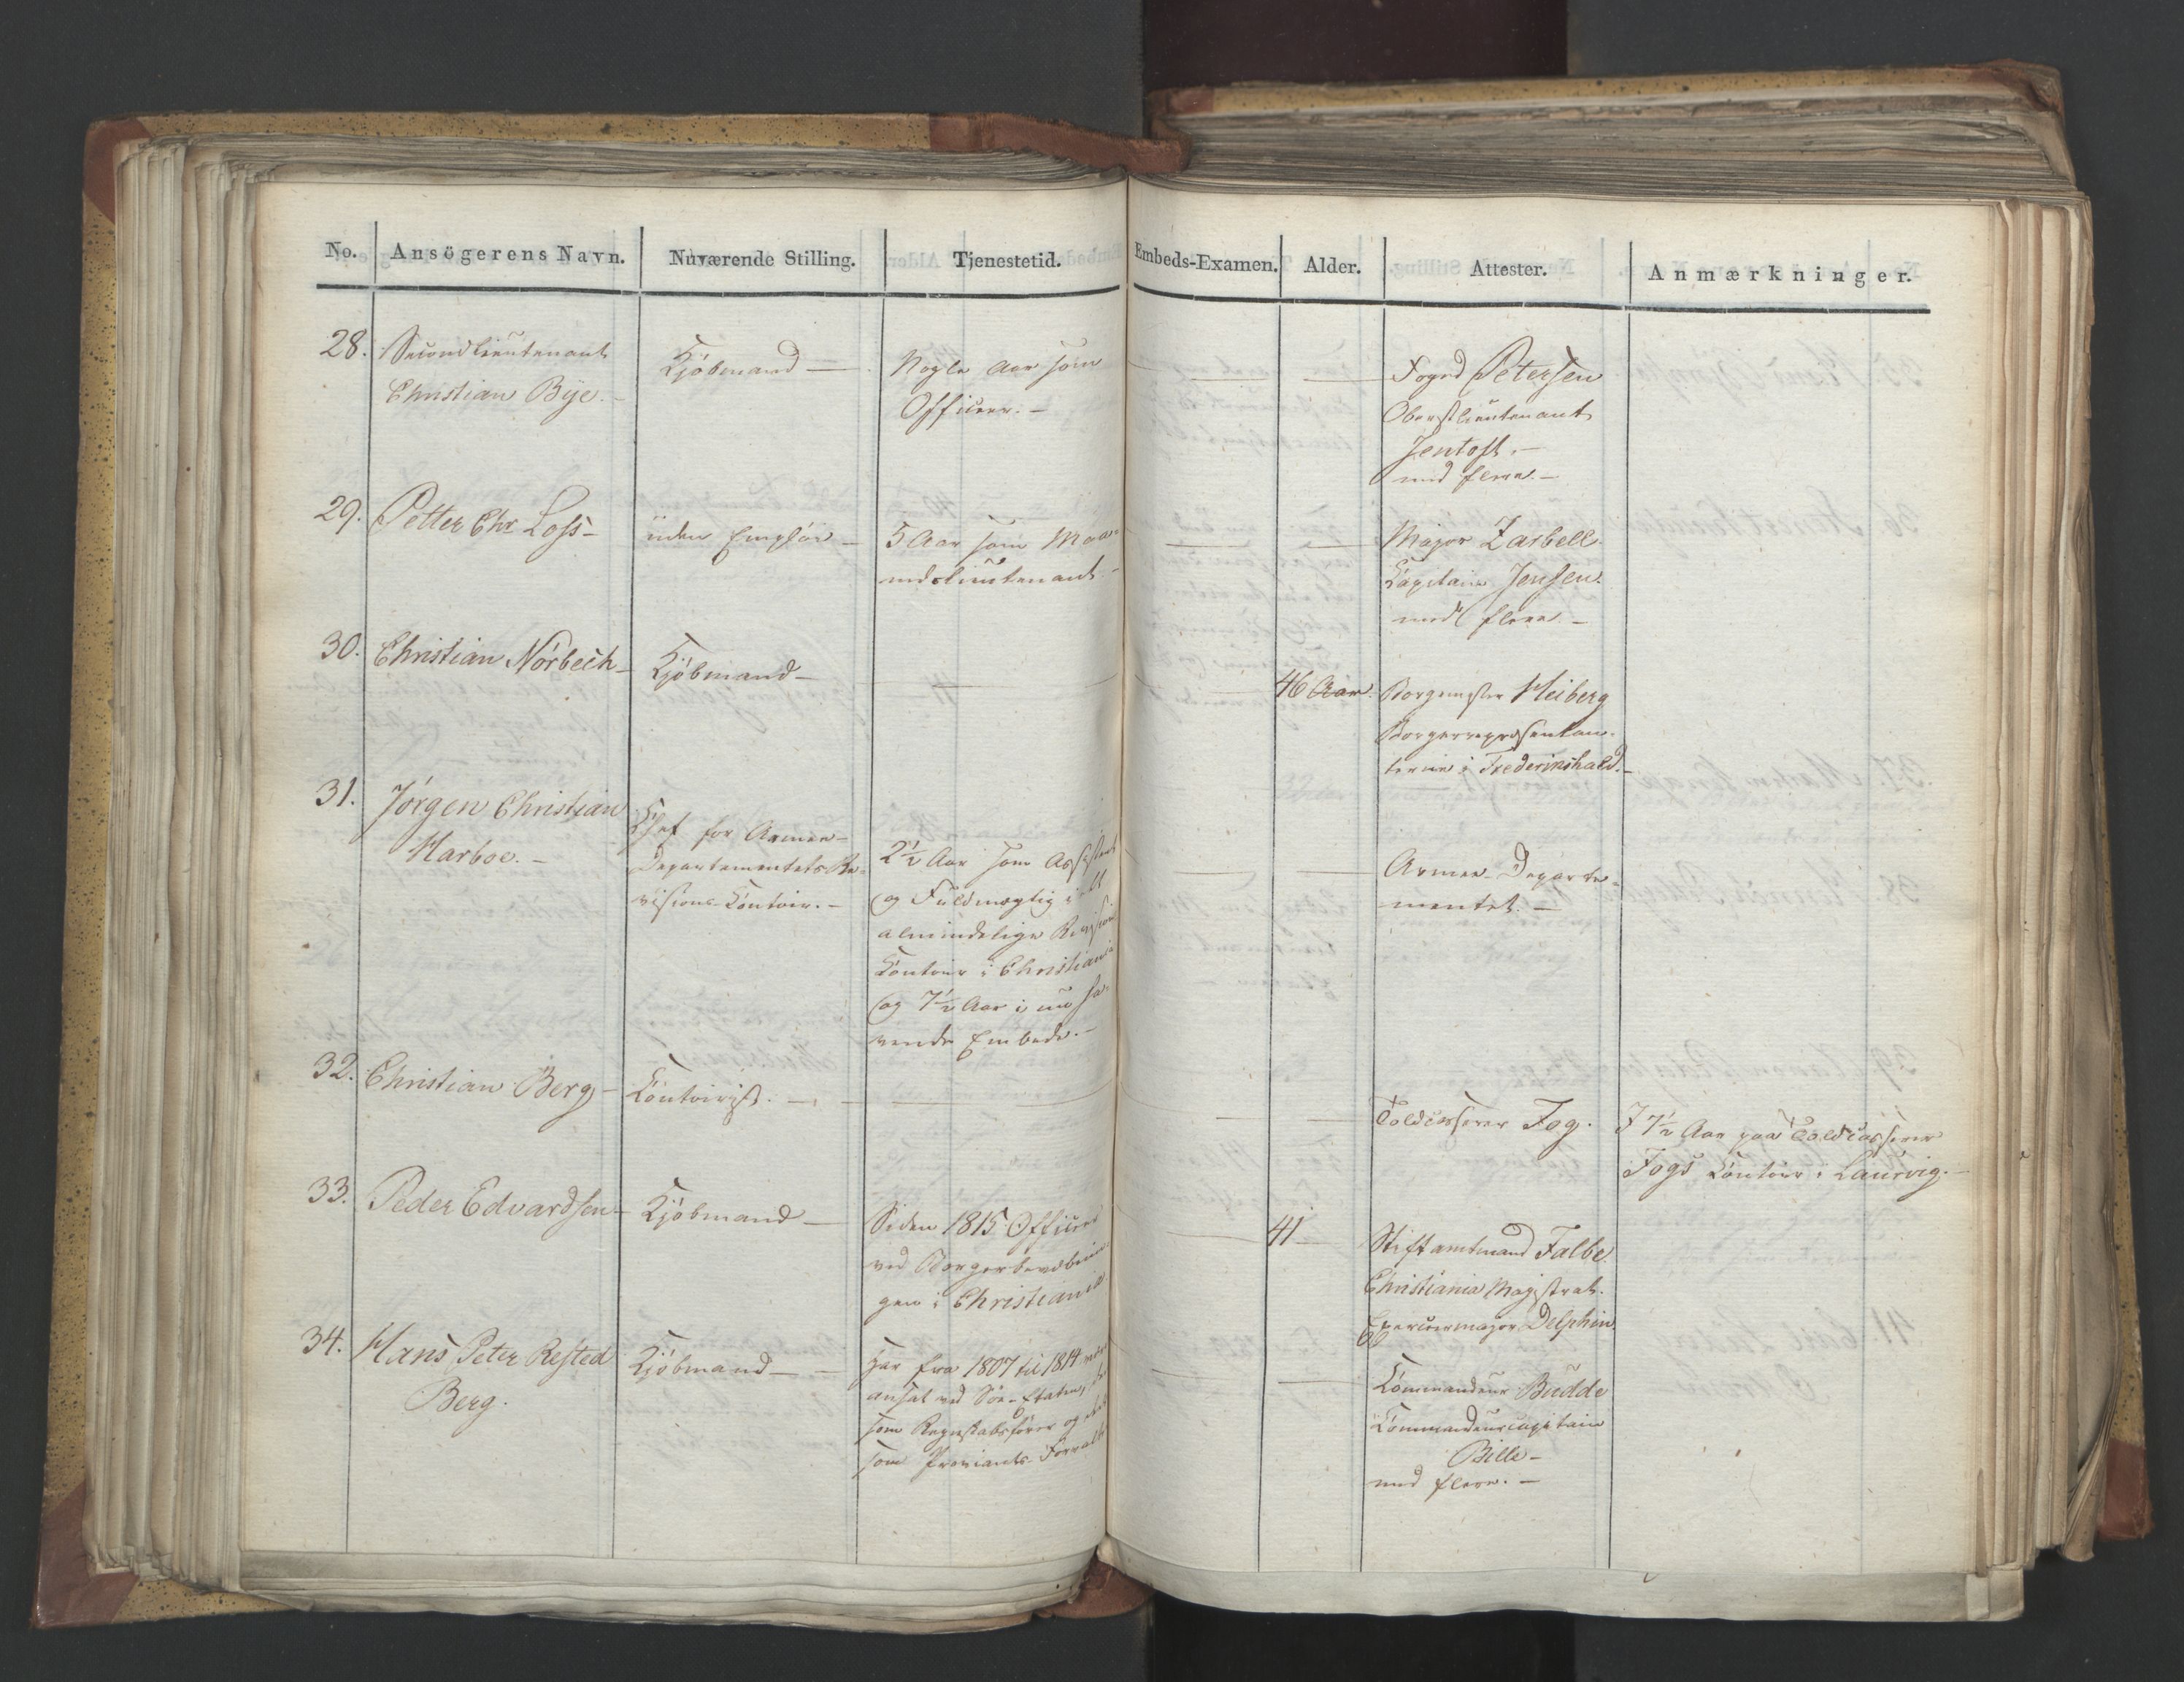 No. Ansögerens Navn. Nuværende Stilling. Tjenestetid. Embeds-Examen. Alder. Attester. Anmærkninger.
28. Secondlieutenant
Christian Bye.
Kjöbmand —
Nogle Aar som
Officeer. —
Foged Petersen
Oberstlieutenant
Jentoft. —
med flere. —
29. Petter Chr. Loss —
uden Employ —
5 Aar som Maa-
nedslieutenant. —
Major Zarbell.
Capitain Jensen.
med flere. —
30. Christian Nörbech —
Kjöbmand —
46 Aar.
Borgemester Heiberg
Borgerrepræsentan-
terne i Frederikshald. —
31. Jörgen Christian
Harboe. —
Chef for Armee-
Departementets Re-
visions-Contoir. —
2½ Aar som Assistent
og Fuldmægtig i det
almindelige Revisions
Contoir i Christiania
og 7½ Aar i nu ha-
vende Embede. —
Armee-Departe-
mentet. —
32. Christian Berg —
Contoirist. —
Toldcasserer Fog.
I 7½ Aar paa Toldcasserer
Fogs Contoir i Laurvig. —
33. Peder Edvardsen —
Kjöbmand —
Siden 1815 Officeer
ved Borgerbevæbnin-
gen i Christiania.
41 —
Stiftamtmand Falbe.
Christiania Magistrat.
Exerceermajor Delphin.
34. Hans Peter Rested
Berg.
Kjöbmand —
Har fra 1807 til 1814 været
ansat ved Söe-Etaten,
som Regnskabsförer og
som Proviants-Forvalter
Commandeur Budde
Commandeurcapitain
Bille —
med flere. —